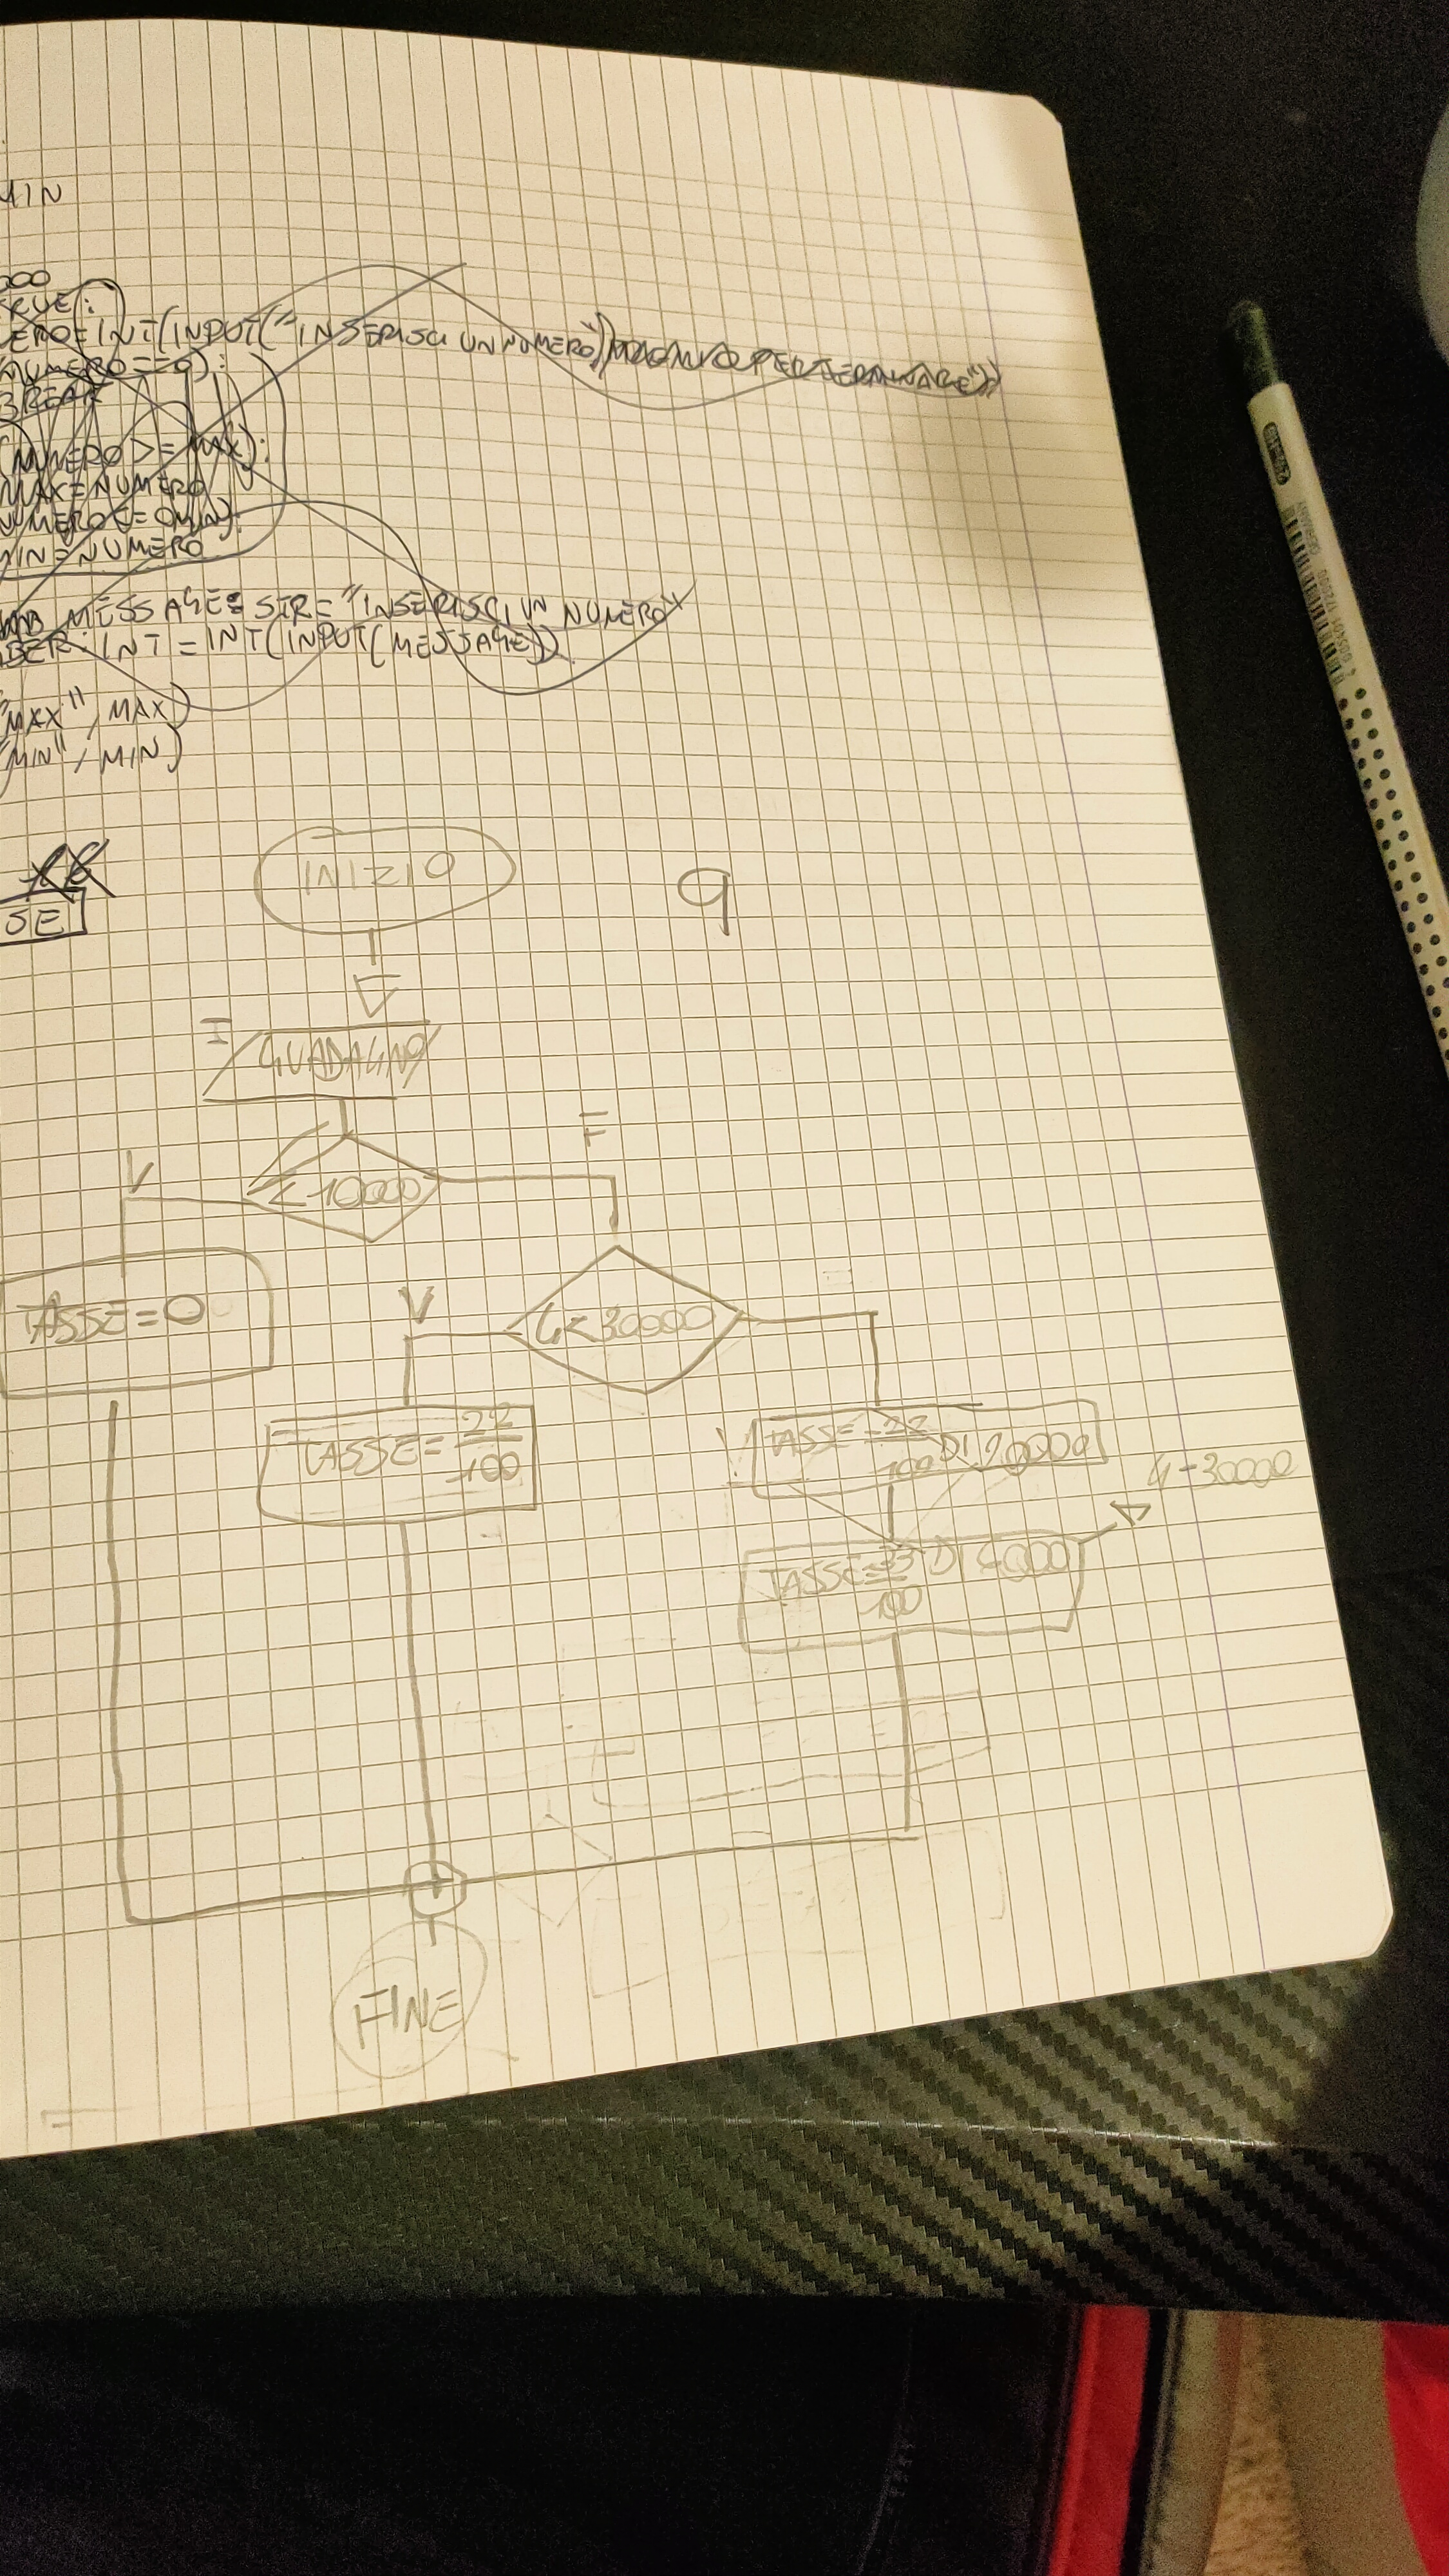 MIN
000
RUE:
ERO=INT(INPUT("INSERISCI UN NUMERO"))
NUMERO==0):
BREAK
(NUMERO>=MAX):
MAX=NUMERO
NUMERO<=0MIN):
MIN=NUMERO
MESSAGE: STR="INSERISCI UN NUMERO"
BER: INT=INT(INPUT(MESSAGE))
"MAX", MAX)
"MIN", MIN)
SE
INIZIO
9
I
GUADAGNO
F
V
<10000
TASSE=0
V
G<30000
TASSE=22/100
TASSE=22/100 DI 20000
G-30000
TASSE=33/100 DI
FINE